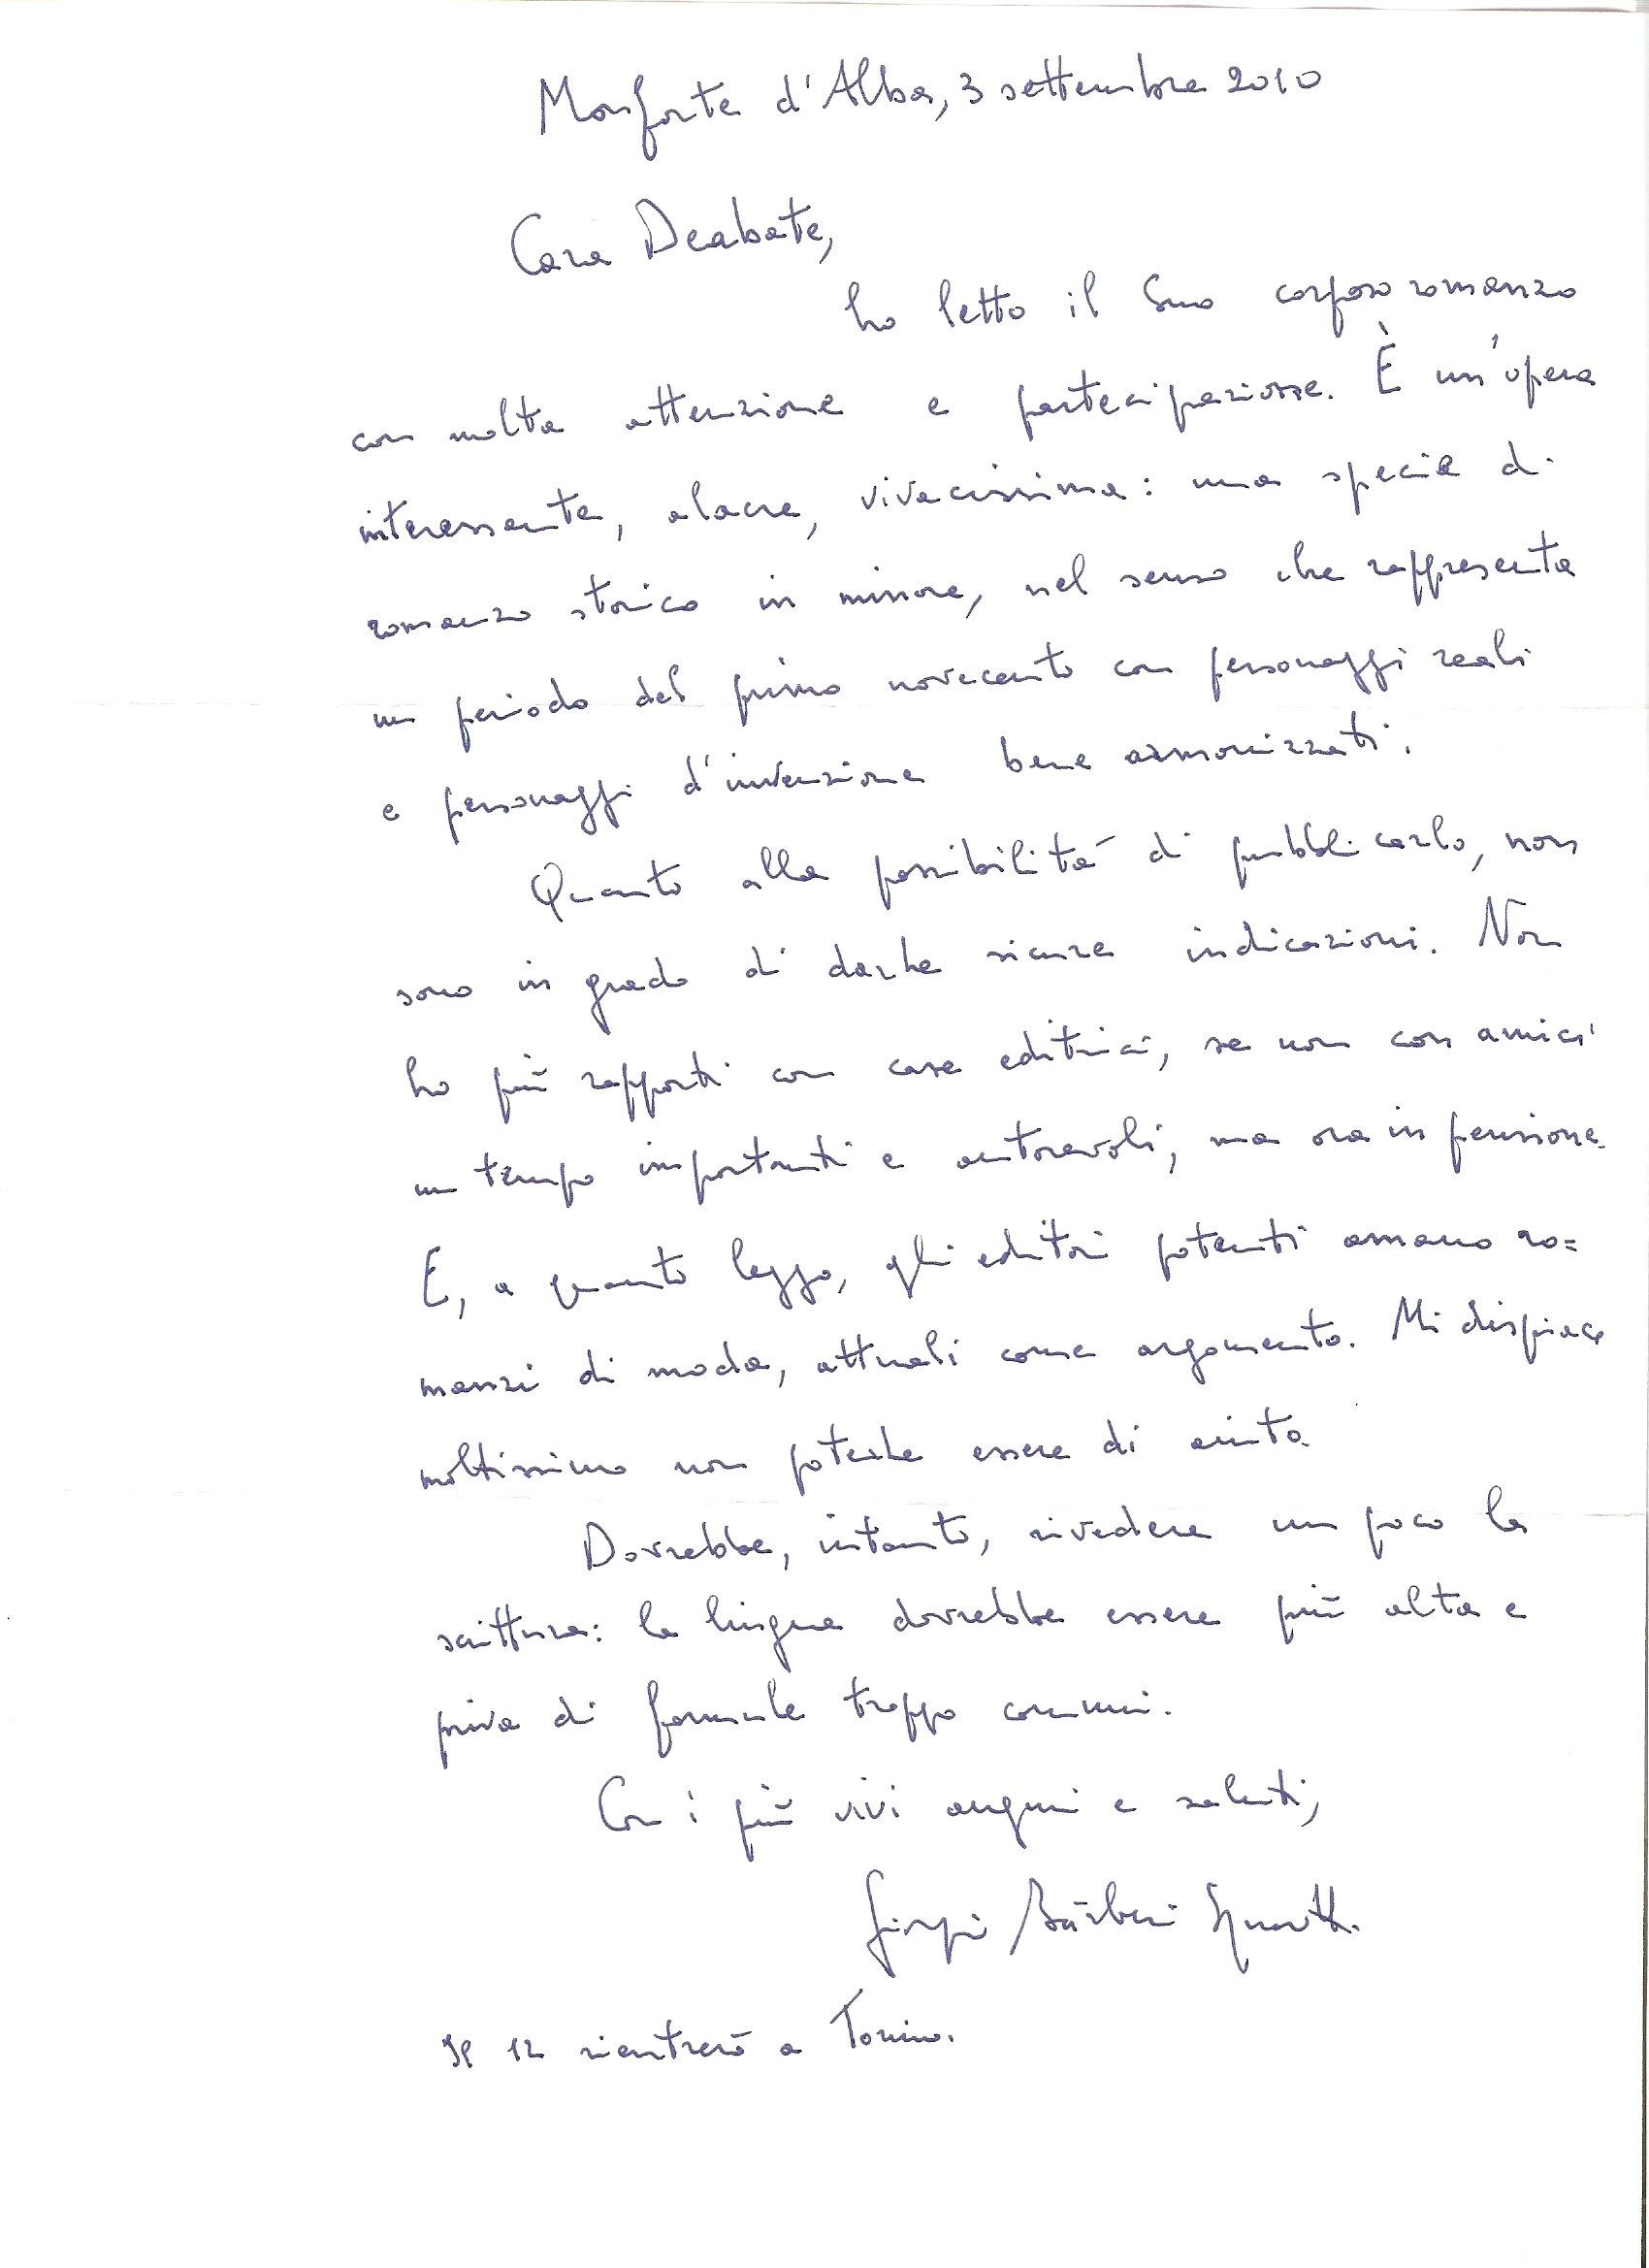 Monforte d'Alba, 3 settembre 2010
Cara Deabate,
ho letto il Suo corposo romanzo
con molta attenzione e partecipazione. È un'opera
interessante, alacre, vivacissima: una specie di
romanzo storico in minore, nel senso che rappresenta
un periodo del primo novecento con personaggi reali
e personaggi d'invenzione bene armonizzati.
Quanto alla possibilità di pubblicarlo, non
sono in grado di darLe sicure indicazioni. Non
ho più rapporti con case editrici, se non con amici
un tempo importanti e autorevoli, ma ora in pensione.
E, a quanto leggo, gli editori potenti amano ro=
manzi di moda, attuali come argomento. Mi dispiace
moltissimo non poterLe essere di aiuto.
Dovrebbe, intanto, rivedere un poco la
scrittura: la lingua dovrebbe essere più alta e
priva di formule troppo comuni.
Con i più vivi auguri e saluti,
Giorgio Bàrberi Squarotti
Il 12 rientrerò a Torino.